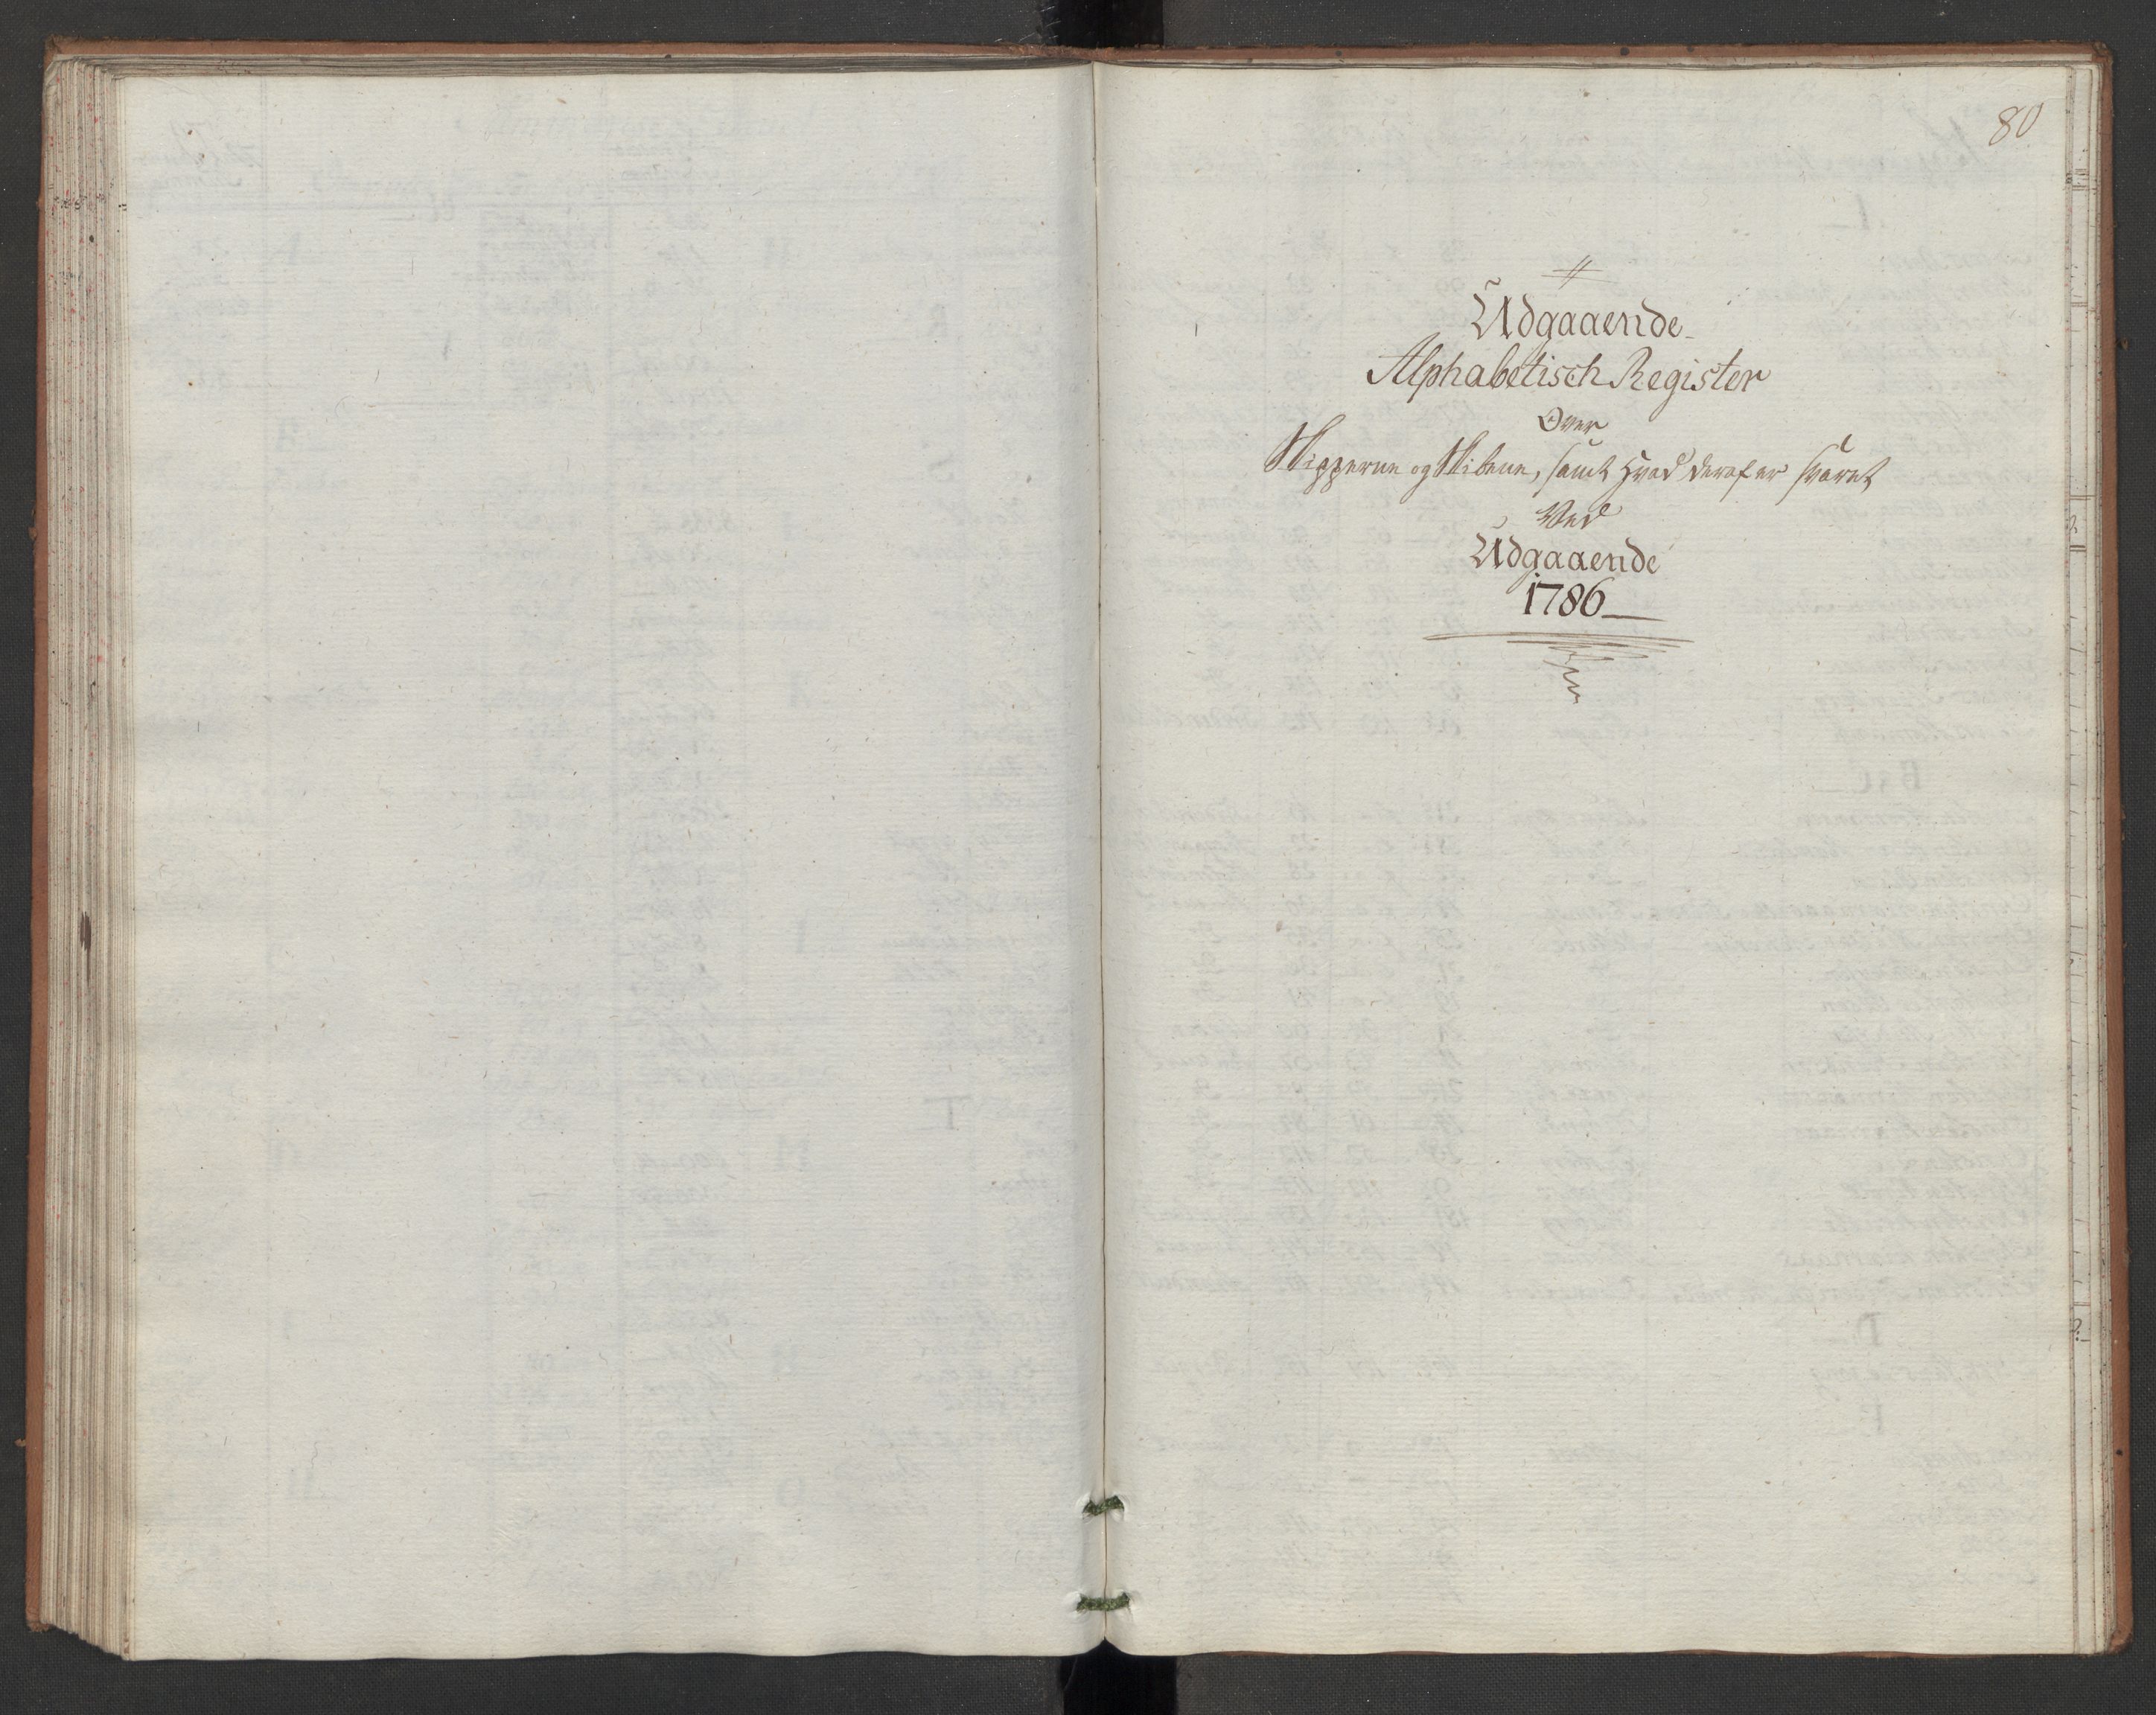 80
Udgaaende
Alphabetisch Register
Over
Skipperne og Skibene, samt hvad deraf er svaret
Ved
Udgaaende
1786